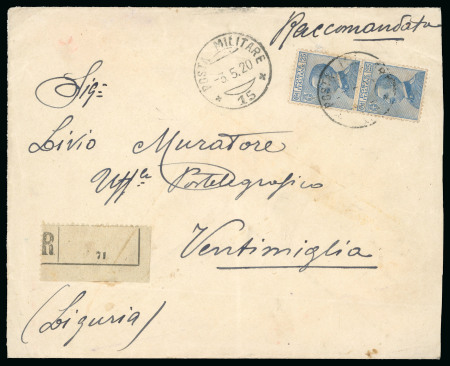 Raccomandata
POSTA MILITARE
-3.5.20
* 15 *
Sig:
Livio Muratore
Uff.le Postelegrafico
Ventimiglia
R
71
(Liguria)